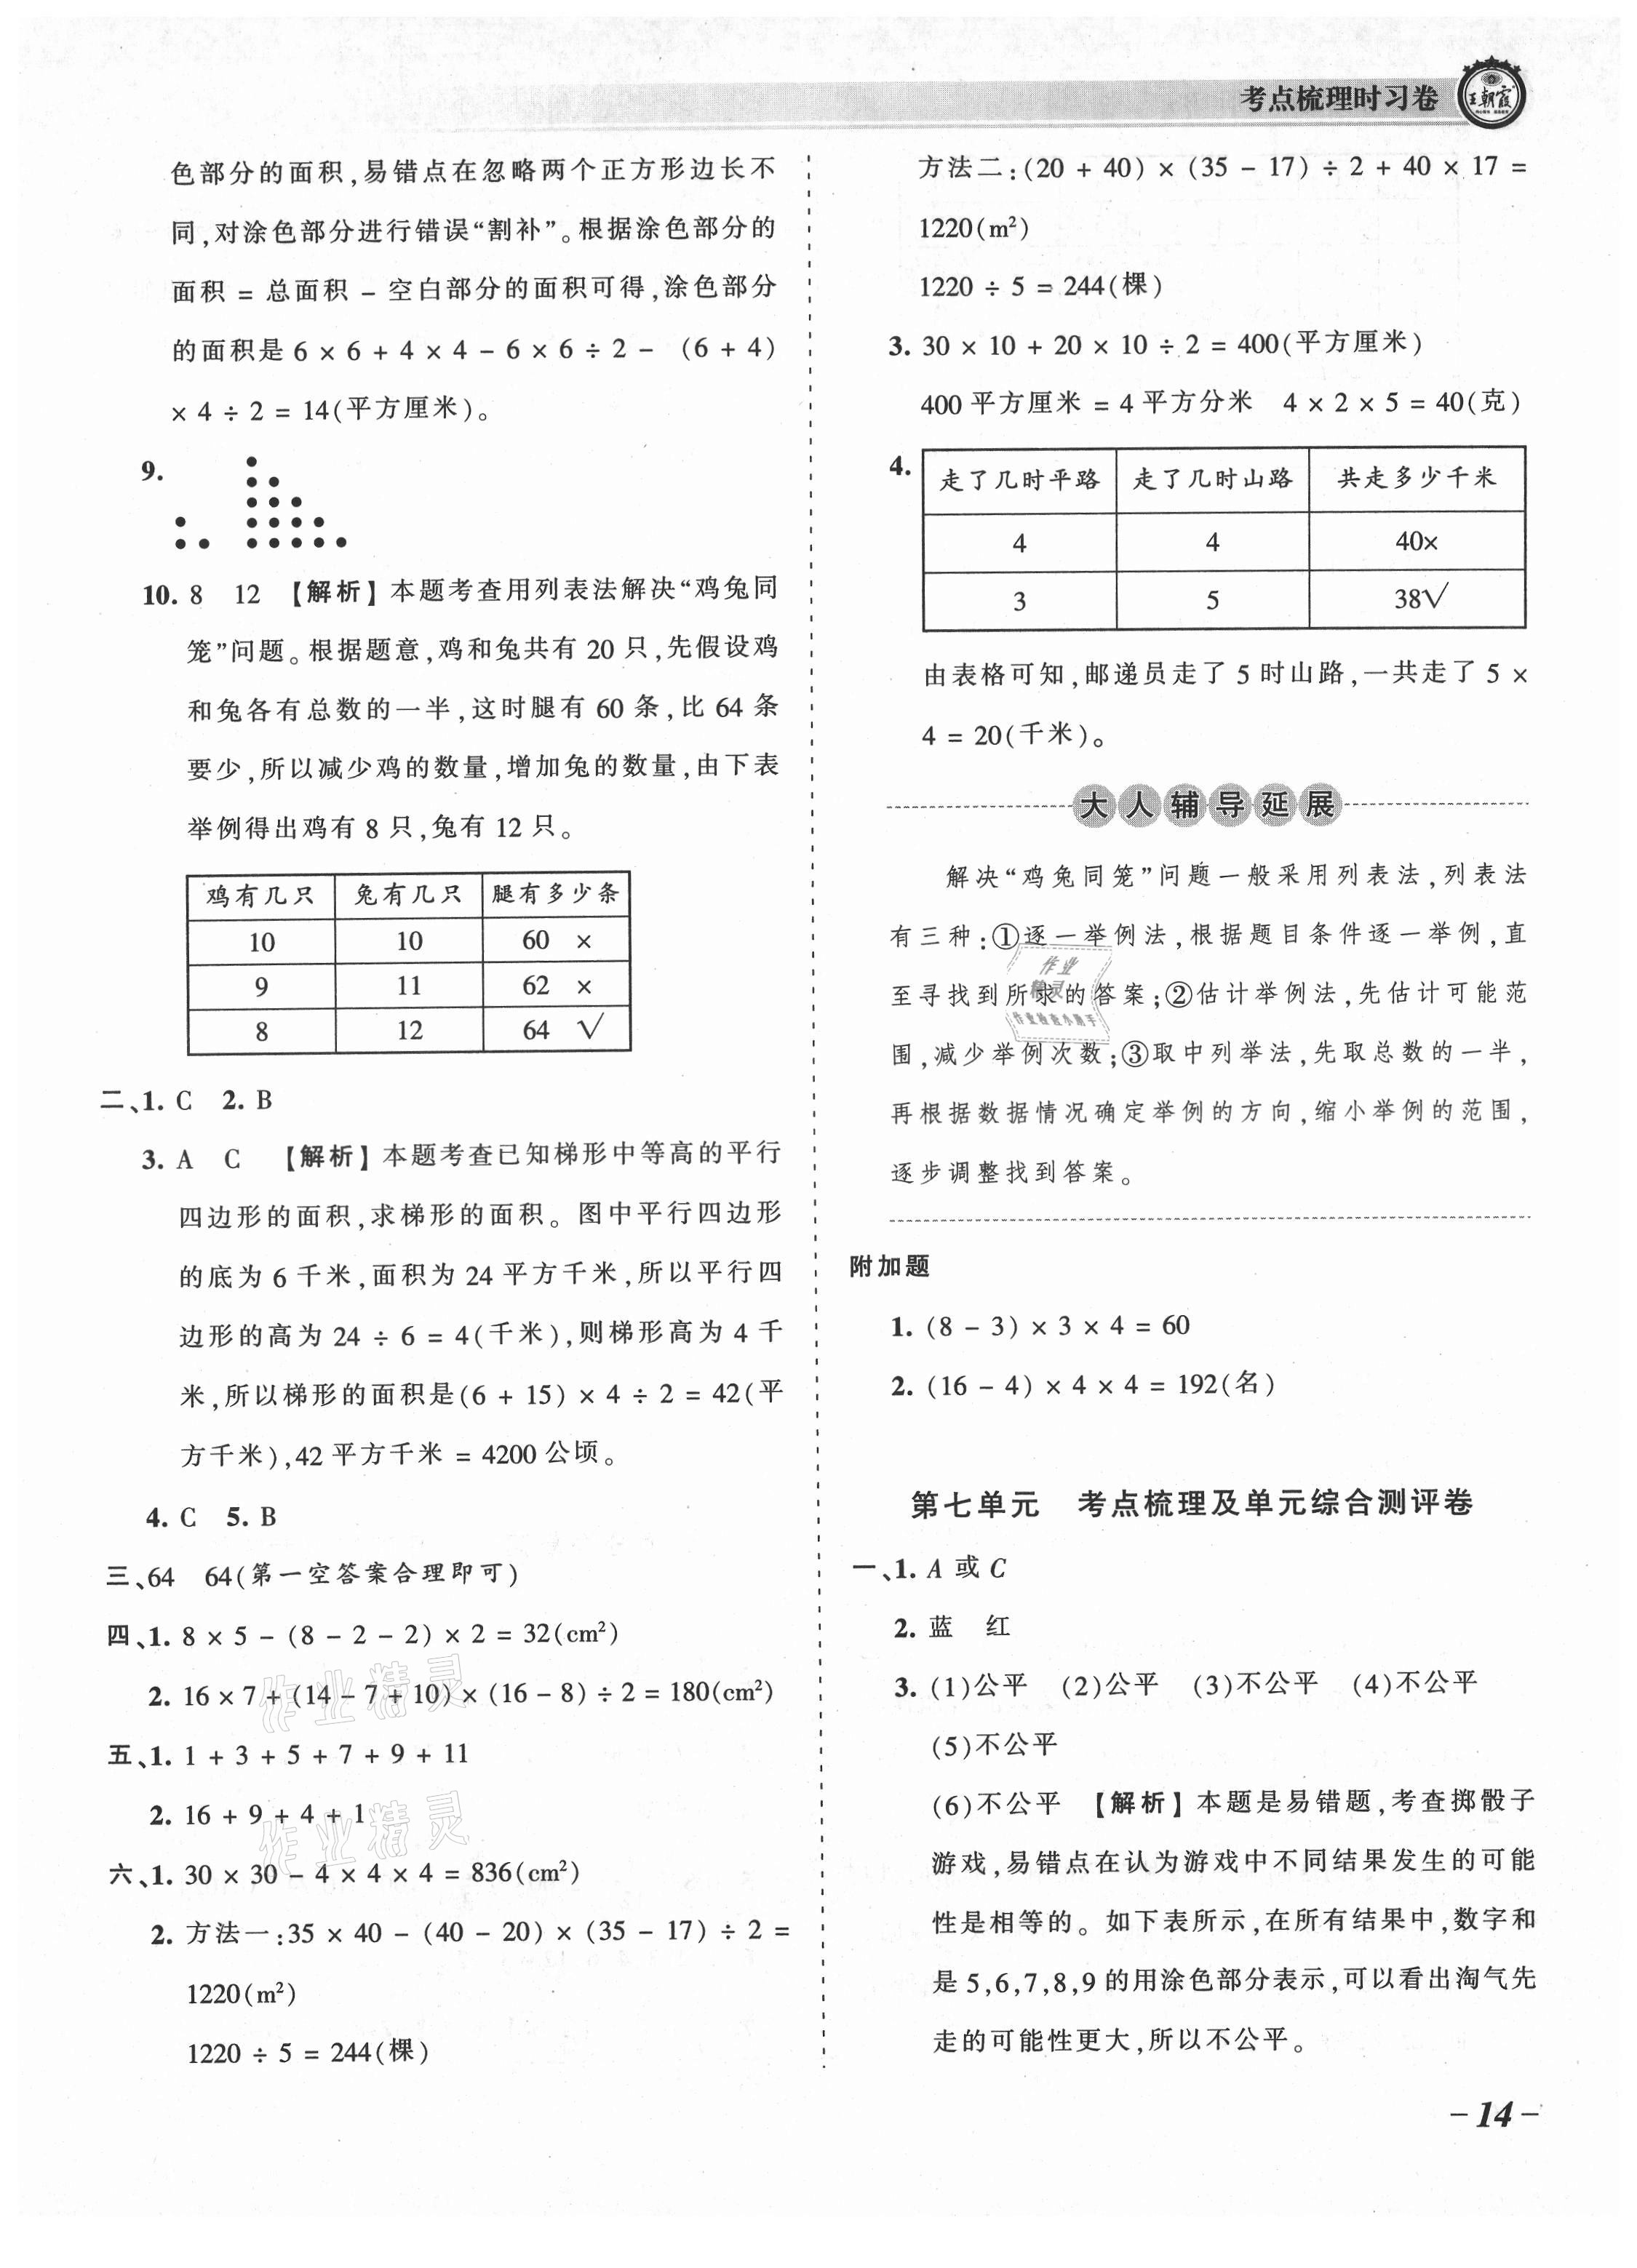 考点梳理时习卷
王朝霞
色部分的面积,易错点在忽略两个正方形边长不
同,对涂色部分进行错误“割补”。根据涂色部分的
面积 = 总面积 - 空白部分的面积可得,涂色部分
的面积是 6 × 6 + 4 × 4 - 6 × 6 ÷ 2 - (6 + 4)
× 4 ÷ 2 = 14(平方厘米)。
9.
10. 8 12 【解析】本题考查用列表法解决“鸡兔同
笼”问题。根据题意,鸡和兔共有 20 只,先假设鸡
和兔各有总数的一半,这时腿有 60 条,比 64 条
要少,所以减少鸡的数量,增加兔的数量,由下表
举例得出鸡有 8 只,兔有 12 只。
鸡有几只 兔有几只 腿有多少条
10 10 60 ×
9 11 62 ×
8 12 64 √
二、1. C 2. B
3. A C 【解析】本题考查已知梯形中等高的平行
四边形的面积,求梯形的面积。图中平行四边形
的底为 6 千米,面积为 24 平方千米,所以平行四
边形的高为 24 ÷ 6 = 4(千米),则梯形高为 4 千
米,所以梯形的面积是(6 + 15) × 4 ÷ 2 = 42(平
方千米),42 平方千米 = 4200 公顷。
4. C 5. B
三、64 64(第一空答案合理即可)
四、1. 8 × 5 - (8 - 2 - 2) × 2 = 32(cm²)
2. 16 × 7 + (14 - 7 + 10) × (16 - 8) ÷ 2 = 180(cm²)
五、1. 1 + 3 + 5 + 7 + 9 + 11
2. 16 + 9 + 4 + 1
六、1. 30 × 30 - 4 × 4 × 4 = 836(cm²)
2. 方法一:35 × 40 - (40 - 20) × (35 - 17) ÷ 2 =
1220(m²)
1220 ÷ 5 = 244(棵)
方法二:(20 + 40) × (35 - 17) ÷ 2 + 40 × 17 =
1220(m²)
1220 ÷ 5 = 244(棵)
3. 30 × 10 + 20 × 10 ÷ 2 = 400(平方厘米)
400 平方厘米 = 4 平方分米 4 × 2 × 5 = 40(克)
4.
走了几时平路 走了几时山路 共走多少千米
4 4 40×
3 5 38√
由表格可知,邮递员走了 5 时山路,一共走了 5 ×
4 = 20(千米)。
大人辅导延展
解决“鸡兔同笼”问题一般采用列表法,列表法
有三种:①逐一举例法,根据题目条件逐一举例,直
至寻找到所求的答案;②估计举例法,先估计可能范
围,减少举例次数;③取中列举法,先取总数的一半,
再根据数据情况确定举例的方向,缩小举例的范围,
逐步调整找到答案。
附加题
1. (8 - 3) × 3 × 4 = 60
2. (16 - 4) × 4 × 4 = 192(名)
第七单元 考点梳理及单元综合测评卷
一、1. A 或 C
2. 蓝 红
3. (1)公平 (2)公平 (3)不公平 (4)不公平
(5)不公平
(6)不公平 【解析】本题是易错题,考查掷骰子
游戏,易错点在认为游戏中不同结果发生的可能
性是相等的。如下表所示,在所有结果中,数字和
是 5,6,7,8,9 的用涂色部分表示,可以看出淘气先
走的可能性更大,所以不公平。
- 14 -
作业精灵
作业精灵
作业
精灵
作业检查小助手